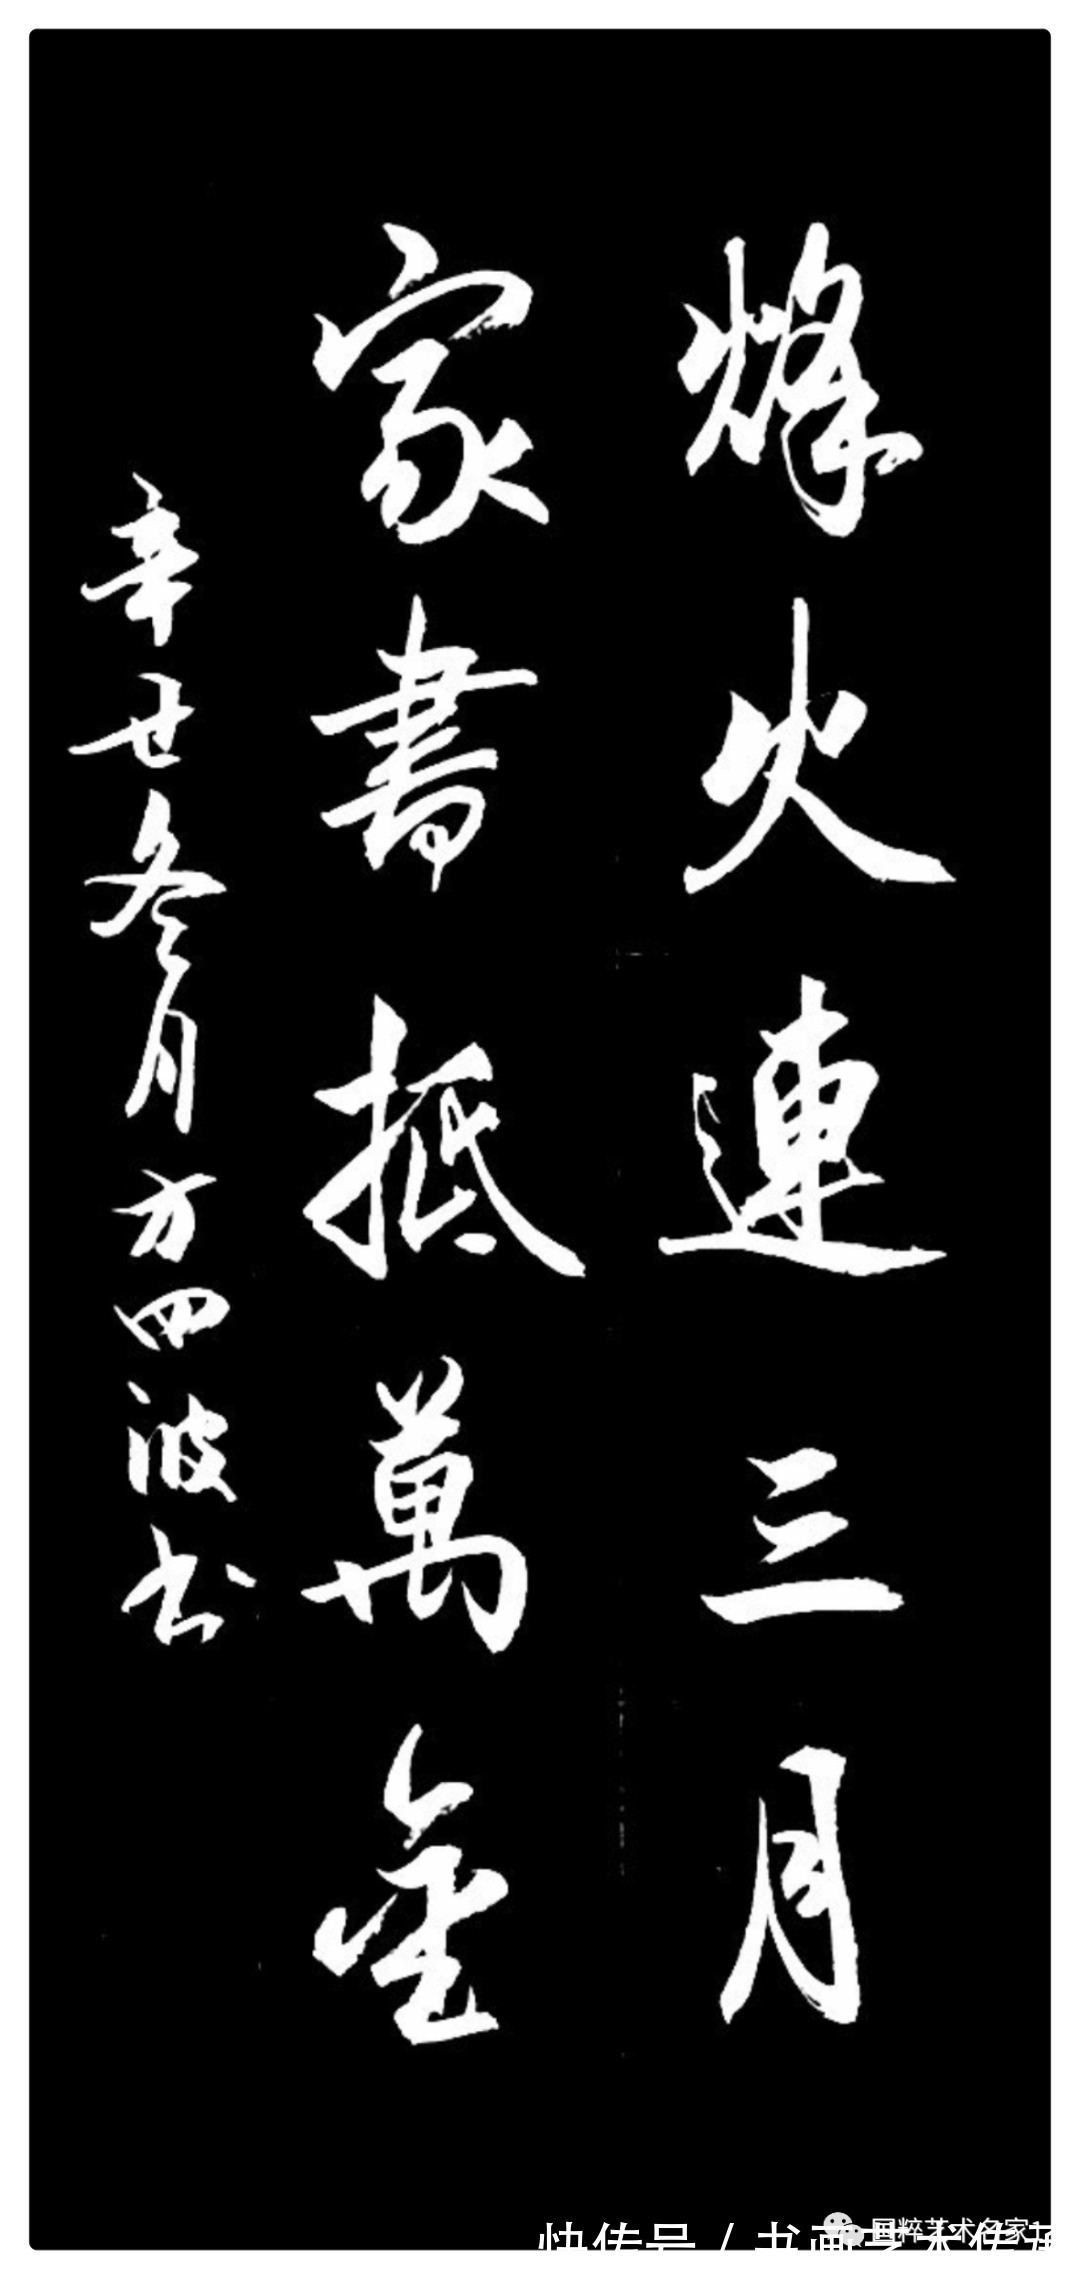 烽火連三月
家書抵萬金
辛丑冬月方四波书
国粹艺术名家
快传号 / 书画艺术传承